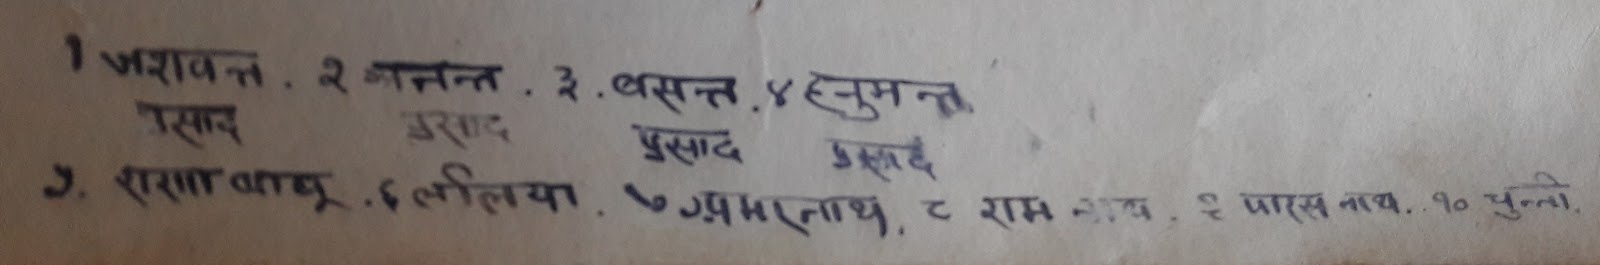 १ जशवन्त . २ अनन्त . ३ . बसन्त . ४ हनुमन्त .
प्रसाद प्रसाद प्रसाद प्रसाद
५ . बाबू . ६ ललिया . ७ अमरनाथ . ८ राम नाथ . ९ पारस नाथ . १० चुन्नी .